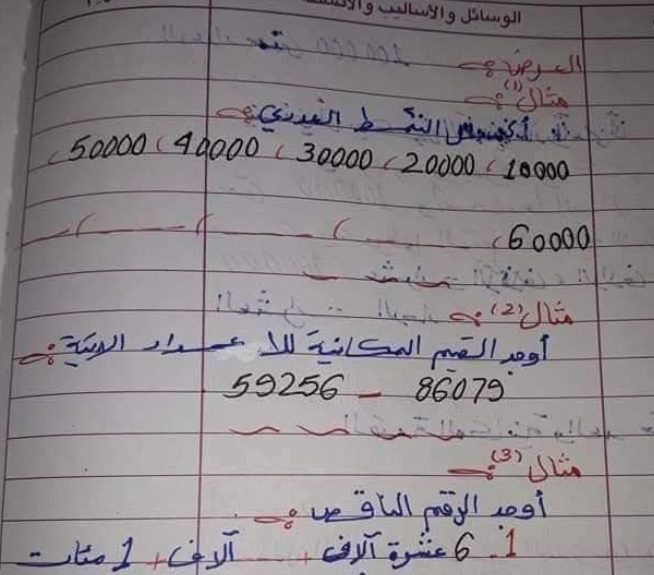 الوسائل والأساليب
العرض :-
مثال (1) :-
النمط العددي :-
10000 ، 20000 ، 30000 ، 40000 ، 50000 ،
60000 ، ___ ، ___ ، ___
مثال (2) :-
أوجد القيم المكانية للأعداد الاتية :-
86079 - 59256
مثال (3) :-
أوجد الرقم الناقص :-
1. 6 عشرة آلاف + ... آلاف + 1 مئات